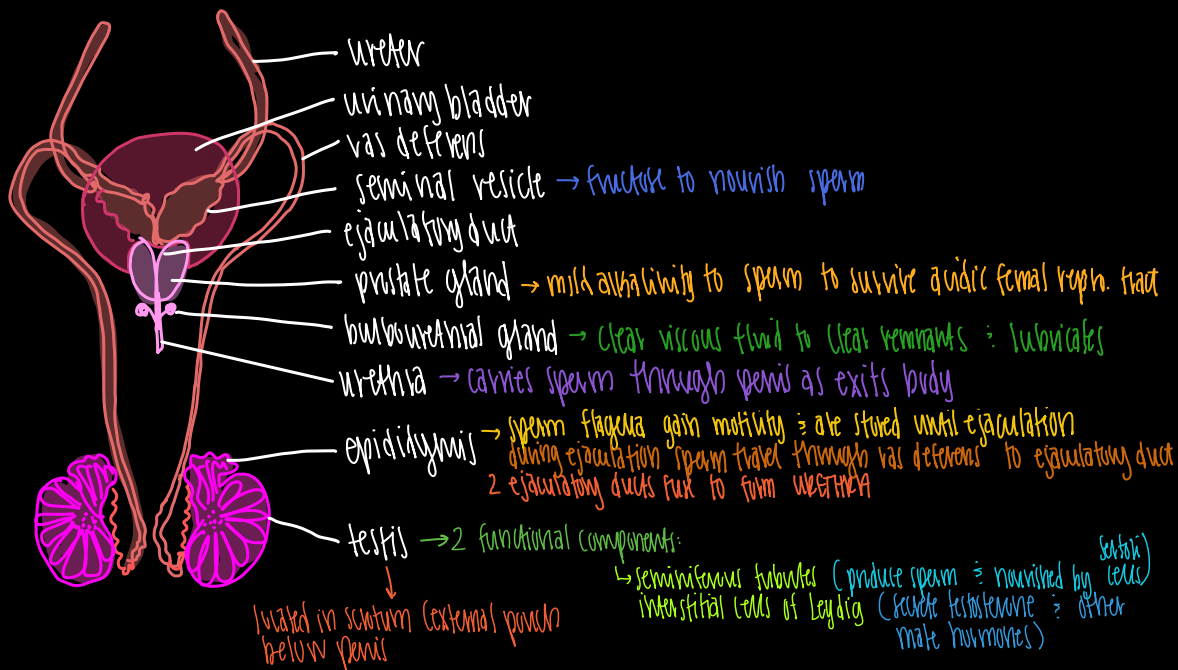 ureter
urinary bladder
vas deferens
seminal vesicle → fructose to nourish sperm
ejaculatory duct
prostate gland → mild alkalinity to sperm to survive acidic femal repro. tract
bulbourethral gland → clear viscous fluid to clear remnants & lubricates
urethra → carries sperm through penis as exits body
epididymis → sperm flagella gain motility & are stored until ejaculation
during ejaculation sperm travel through vas deferens to ejaculatory duct
2 ejaculatory ducts fuse to form URETHRA
testis → 2 functional components:
↳ seminiferous tubules (produce sperm & nourished by sertoli cells)
interstitial cells of Leydig (secrete testosterone & other
male hormones)
located in scrotum (external pouch
below penis